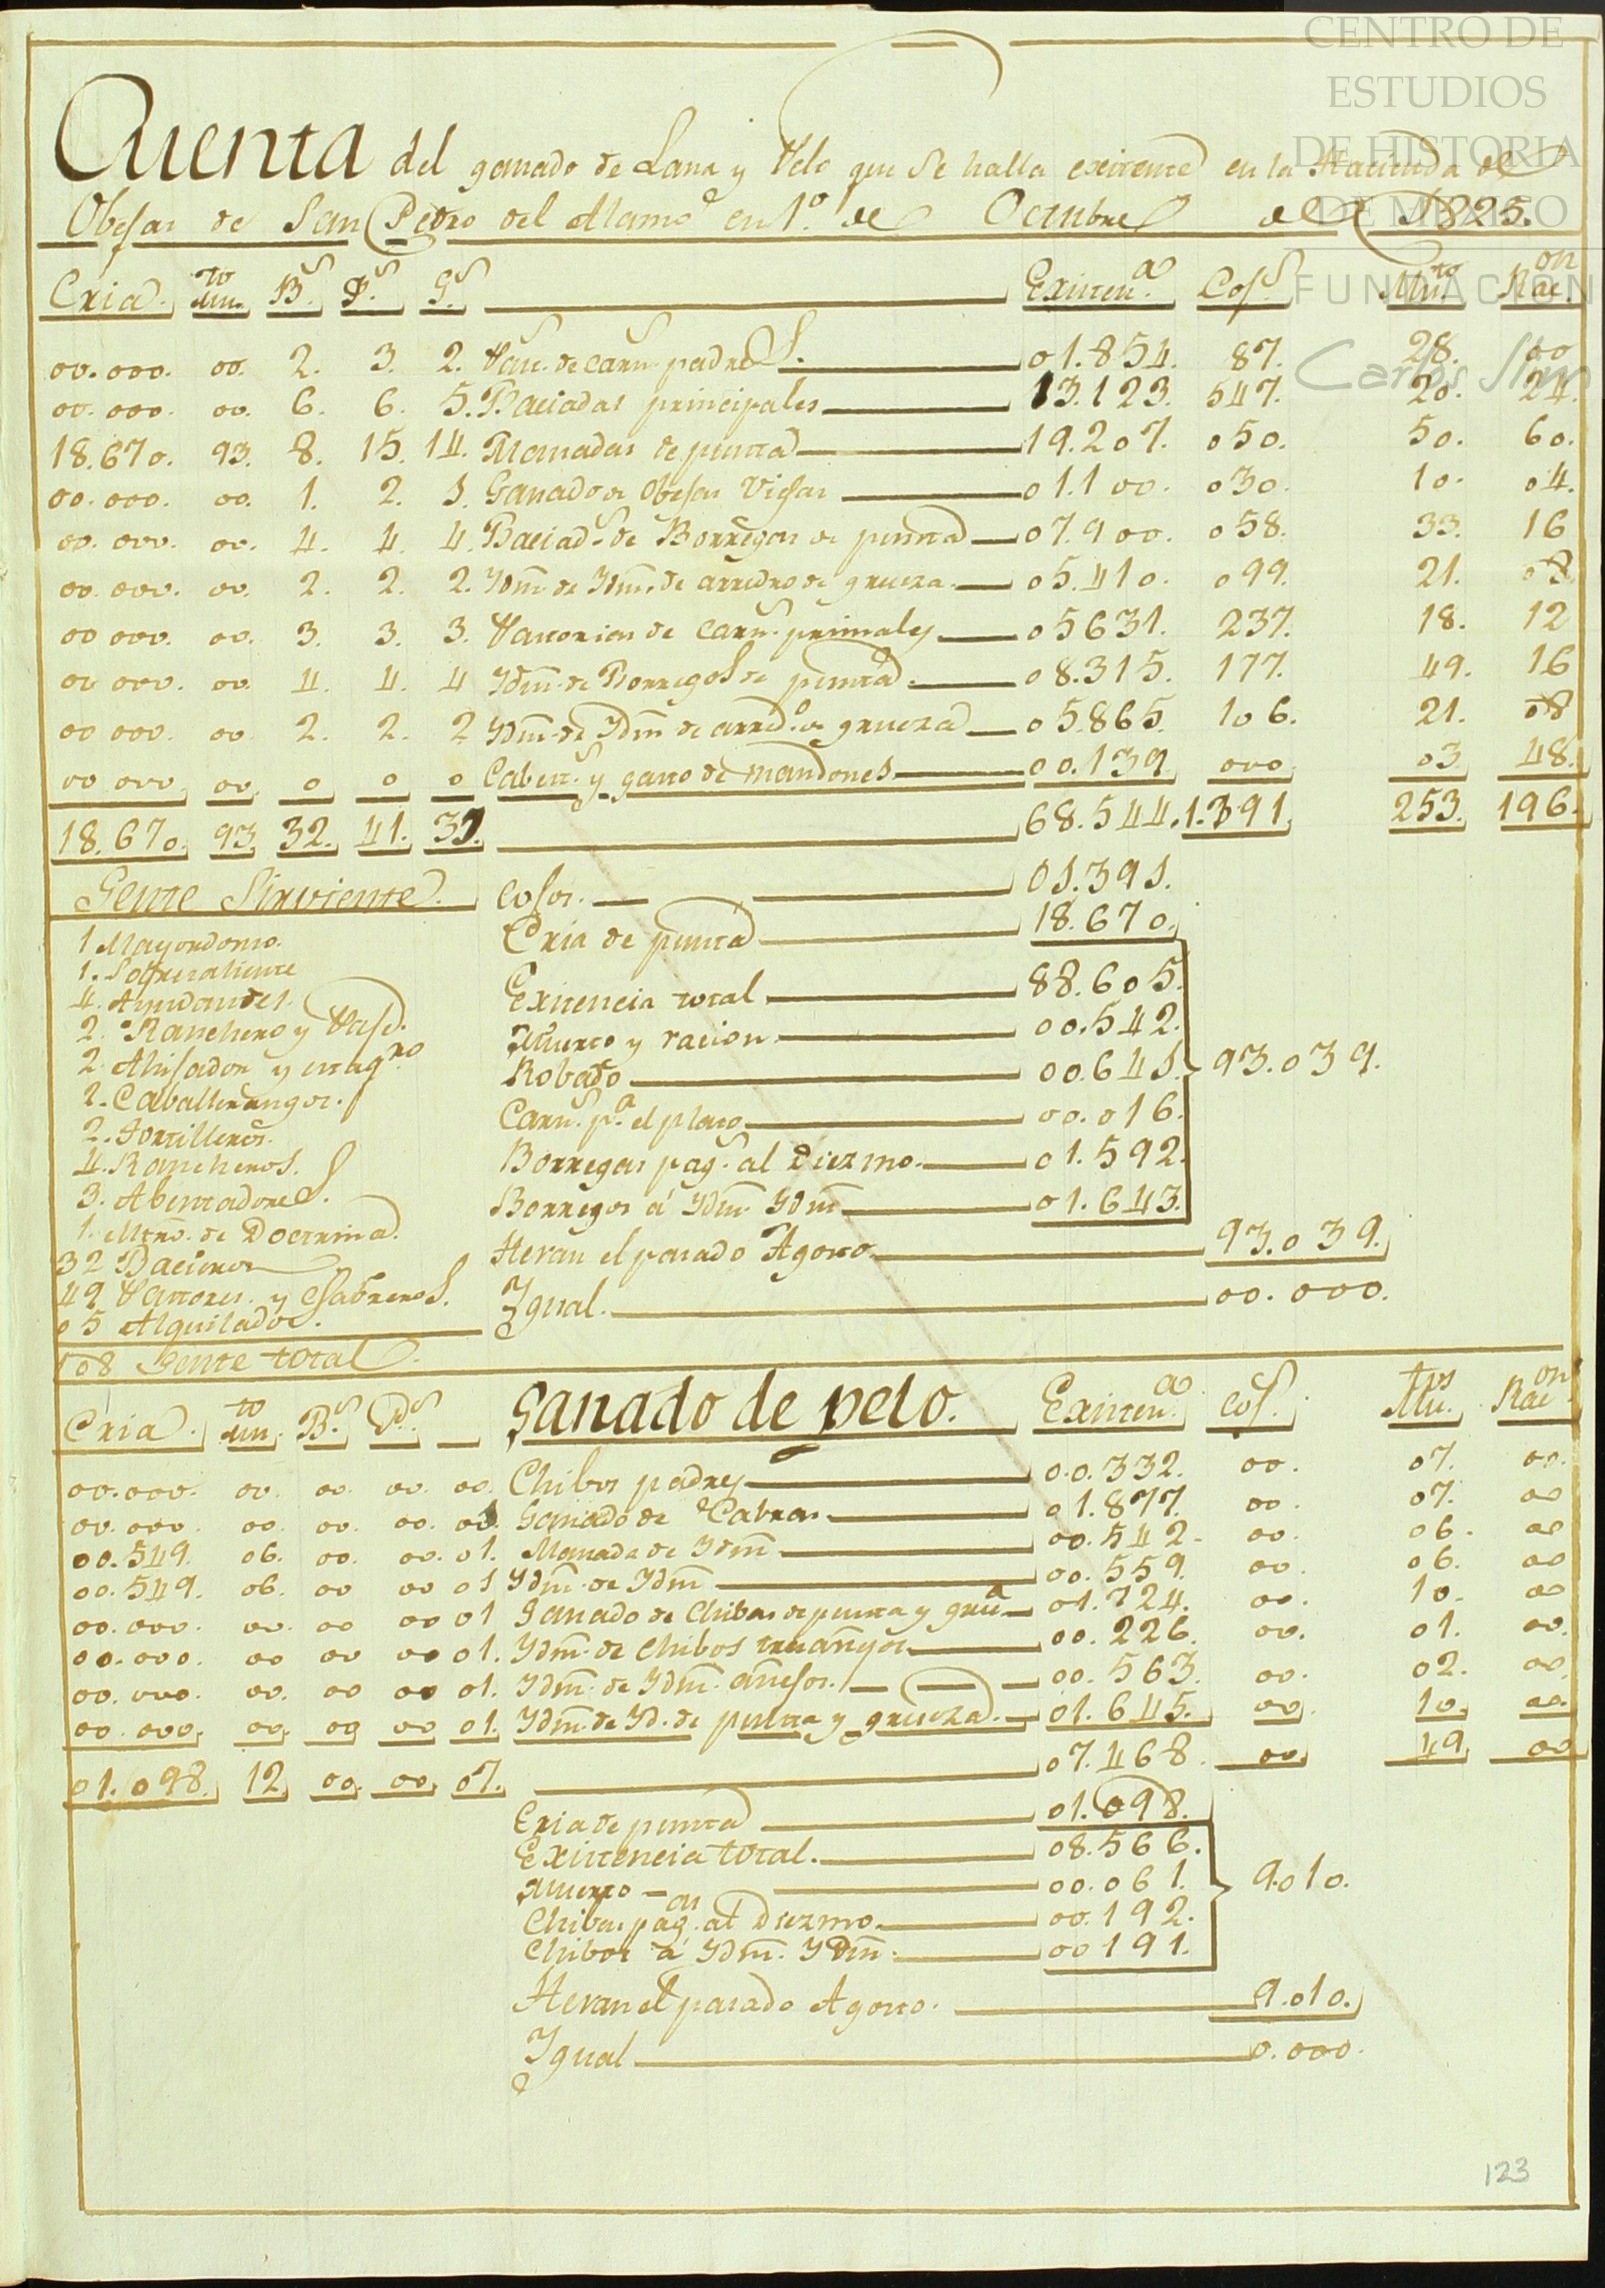 CENTRO DE
ESTUDIOS
DE HISTORIA
DE MÉXICO
FUNDACIÓN
Carlos Slim
Cuenta del ganado de Lana y Pelo que se halla existente en la Hacienda de
Obejas de San Pedro del Alamo en 1º. de Octubre de 1825.
Cria. B.s P.s G.s Existen.a Cojs. Mu.to Rac.on
00.000. 00. 2. 3. 2. de carn.s padres. 01.854. 87. 28. 00
00.000. 00. 6. 6. 5. Baciadas principales 13.123. 547. 20. 24.
18.670. 93. 8. 15. 14. Manadas de punta 19.207. 050. 50. 60.
00.000. 00. 1. 2. 1. Ganado de Obejas Viejas 01.100. 030. 10. 04.
00.000. 00. 4. 4. 4. Baciad.s de Borregas de punta 07.900. 058. 33. 16
00.000. 00. 2. 2. 2. Ydm. de Ydm. de arredro de grueza. 05.410. 099. 21. 08
00 000. 00. 3. 3. 3. Pastorias de carn.s primales 05631. 237. 18. 12
00 000. 00. 4. 4. 4 Ydm. de Borregos de punta. 08.315. 177. 49. 16
00 000. 00 2. 2. 2 Ydm. de Ydm de arred.o de grueza 05.865. 106. 21. 08
00 000. 00. 0 0 0 Cabest.s y gasto de mandones 00.139 000 03 48.
18.670. 93. 32. 41. 37. 68.544. 1.391. 253. 196.
Gente Sirviente. Cojos. 01.391.
1 Mayordomo. Cria de punta 18.670.
1. Sobresaliente
4. Ayudantes. Existencia total 88.605.
2. Ranchero y Muerto y racion. 00.542.
2. Ahijador y Robado 00.641. 93.039.
2. Caballerangos. Carn.s p.a el plato 00.016.
2. Tortilleros.
4. Rancheros. Borregas pag.s al Diezmo. 01.592.
3. Abentadores. Borregos á Ydm. Ydm 01.643.
1. Mtro. de Doctrina. Heran el pasado Agosto. 93.039.
32 Bacieros
49 Pastores y Cabreros. Ygual. 00.000.
05 Alquilados.
108 Gente total.
Cria. B.s P.s Ganado de pelo. Existen.a Coj.s Mu.tos Rac.on
00.000. 00. 00. 00. 00. Chibos padres 00.332. 00. 07. 00.
00.000. 00. 00. 00. 01. Ganado de Cabras 01.877. 00. 07. 00
00.549. 06. 00. 00. 01. Manada de Ydm 00.542. 00. 06. 00
00.549. 06. 00 00 01 Ydm. de Ydm 00.559. 00. 06. 00
00.000. 00. 00 00 01 Ganado de Chibas de punta y grue.a 01.724. 00. 10. 00
00.000. 00 00 00 01. Ydm. de Chibos tresañejos 00.226. 00. 01. 00.
00.000. 00. 00 00 01. Ydm. de Ydm. añejos. 00.563. 00. 02. 00
00.000. 00. 00 00 01. Ydm. de Yd. de punta y grueza. 01.645. 00. 10. 00.
01.098. 12. 00. 00. 07. 07.468. 00. 49. 00
Cria de punta 01.098.
Existencia total. 08.566.
Muerto 00.061. 9.010.
Chibas pag.on al Diezmo. 00.192.
Chibos á Ydm. Ydm. 00191.
Heran el pasado Agosto. 9.010.
Ygual 0.000.
123